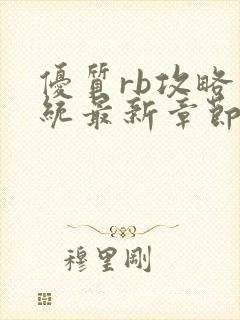 優質rb攻略
統最新章節
穆里剛